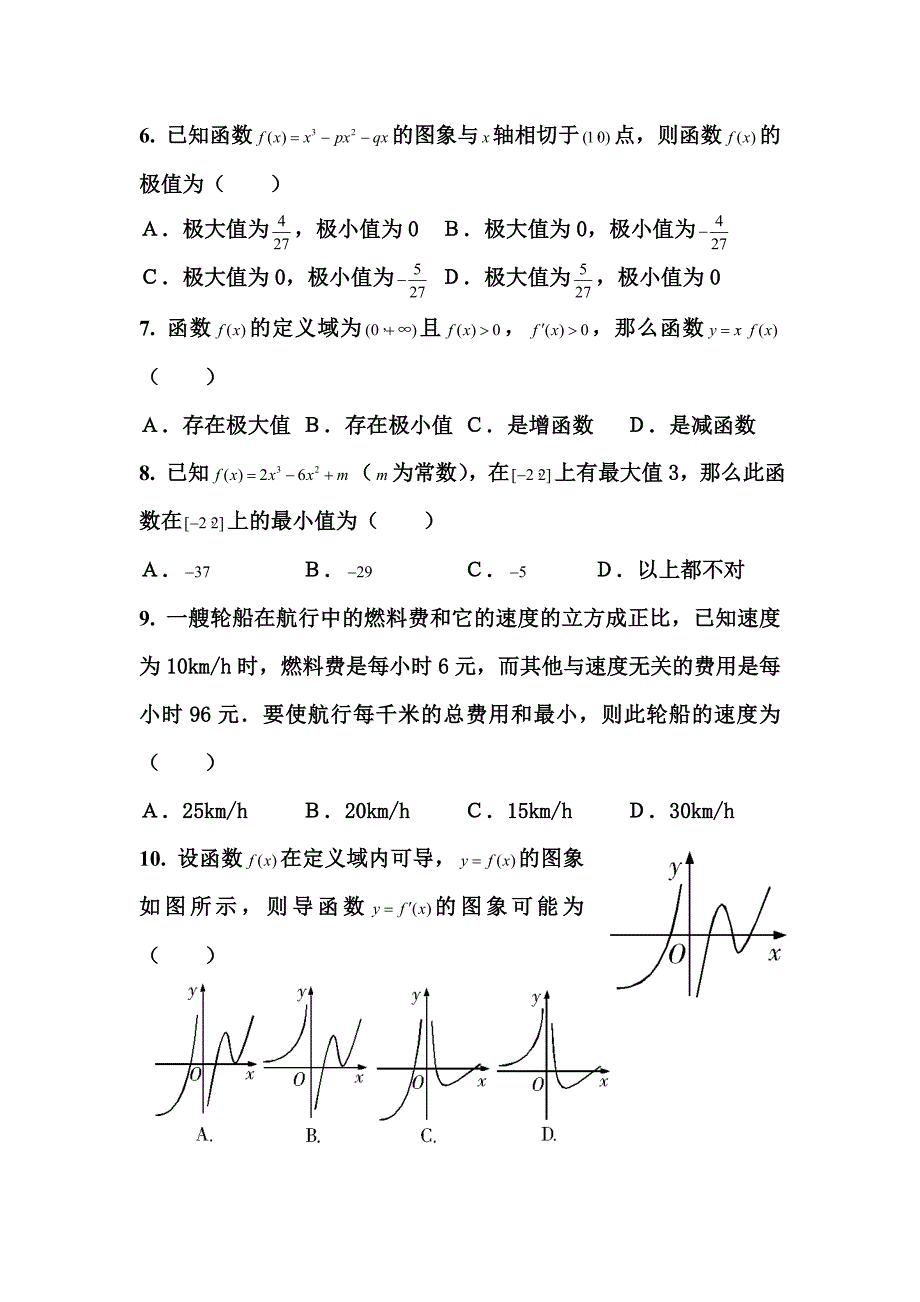 6. 已知函数 f(x) = x³ − px² − qx 的图象与 x 轴相切于 (1 0) 点，则函数 f(x) 的
极值为（　　）
A．极大值为 4/27，极小值为 0　B．极大值为 0，极小值为 −4/27
C．极大值为 0，极小值为 −5/27　D．极大值为 5/27，极小值为 0
7. 函数 f(x) 的定义域为 (0，+∞) 且 f(x) > 0，f′(x) > 0，那么函数 y = x f(x)
（　　）
A．存在极大值　B．存在极小值　C．是增函数　D．是减函数
8. 已知 f(x) = 2x³ − 6x² + m（m 为常数），在 [−2 2] 上有最大值 3，那么此函
数在 [−2 2] 上的最小值为（　　）
A．−37　B．−29　C．−5　D．以上都不对
9. 一艘轮船在航行中的燃料费和它的速度的立方成正比，已知速度
为 10km/h 时，燃料费是每小时 6 元，而其他与速度无关的费用是每
小时 96 元．要使航行每千米的总费用和最小，则此轮船的速度为
（　　）
A．25km/h　B．20km/h　C．15km/h　D．30km/h
10. 设函数 f(x) 在定义域内可导，y = f(x) 的图象
如图所示，则导函数 y = f′(x) 的图象可能为
（　　）
y
O x
y y y y
O x O x O x O x
A. B. C. D.